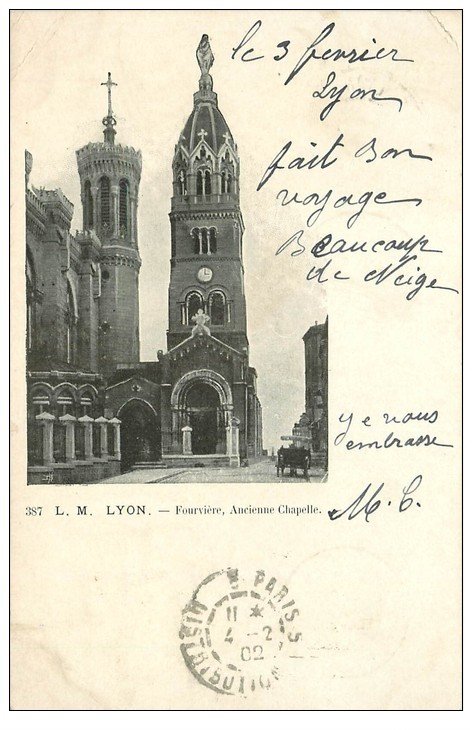 le 3 fevrier
Lyon
fait Bon
voyage
Beaucoup
de Neige
je vous
embrasse
M. C.
387 L. M. LYON. — Fourvière, Ancienne Chapelle.
PARIS 5
11 *
4 - 2
02
DISTRIBUTION